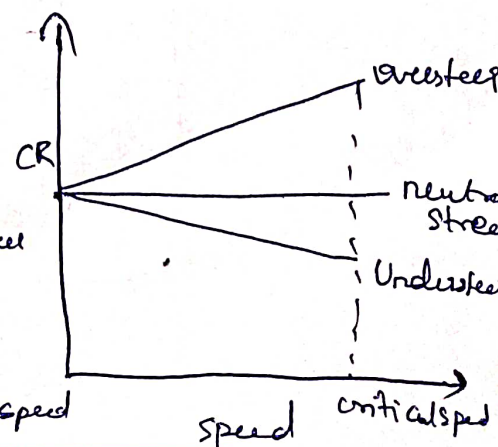 oversteer
CR
neutra
stree
Understee
speed
speed
critical sped